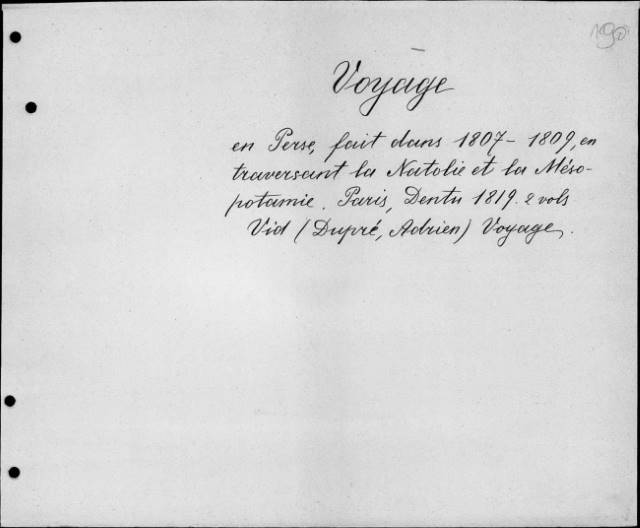 190
Voyage
en Perse, fait dans 1807-1809, en
traversant la Natolie et la Méso-
potamie. Paris, Dentu 1819. 2 vols
Vid (Dupré, Adrien) Voyage.